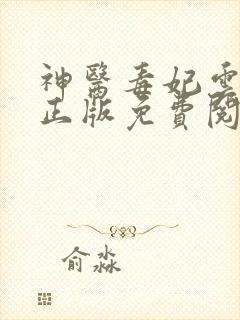 神醫毒妃雲
正版免費閱
俞淼